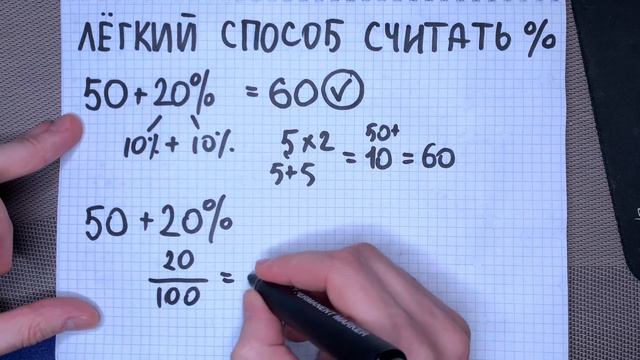 ЛЁГКИЙ СПОСОБ СЧИТАТЬ %
50 + 20% = 60
10% + 10%.
5 × 2 = 10 = 60
50+
5+5
50 + 20%
20
100 =
PERMANENT MARKER